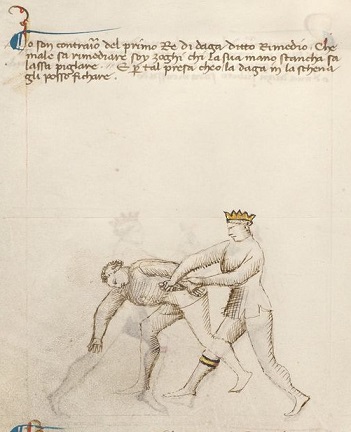 Io son contrario del primo Re di daga ditto Rimedio. Che
male sa rimediare soy zoghi chi la sua mano stancha sa
lassa pigliare. E p tal presa ch'eo la daga in la schena
gli posso fichare.